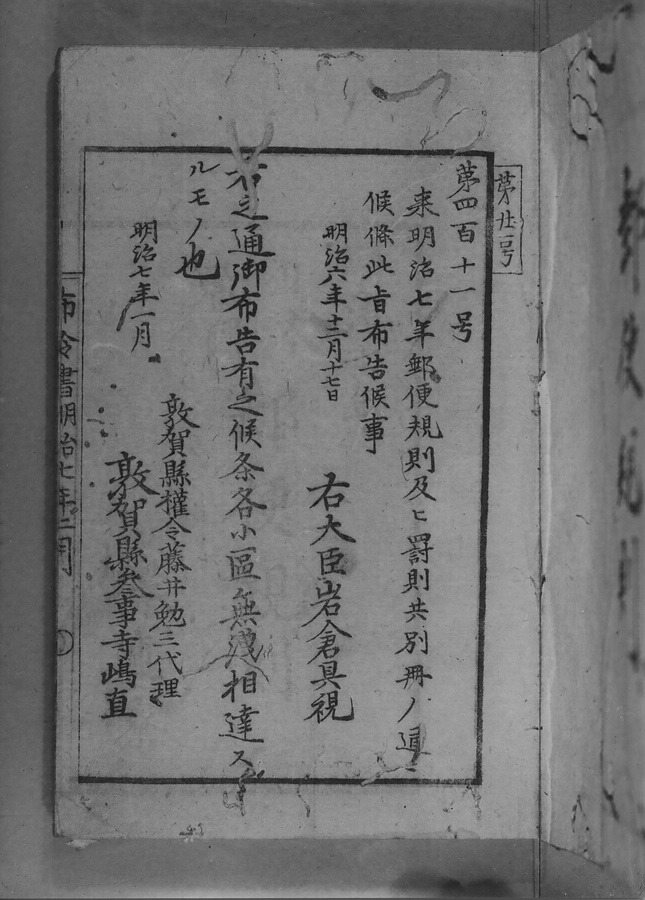 第廿一号
第四百十一号
来明治七年郵便規則及ヒ罰則共別冊ノ通
候條此旨布告候事
明治六年十二月十七日
右大臣岩倉具視
右之通御布告有之候条各小區無洩相達ス
ルモノ也
明治七年一月
敦賀縣權令藤井勉三代理
敦賀縣叅事寺嶋直
布令書明治七年二月